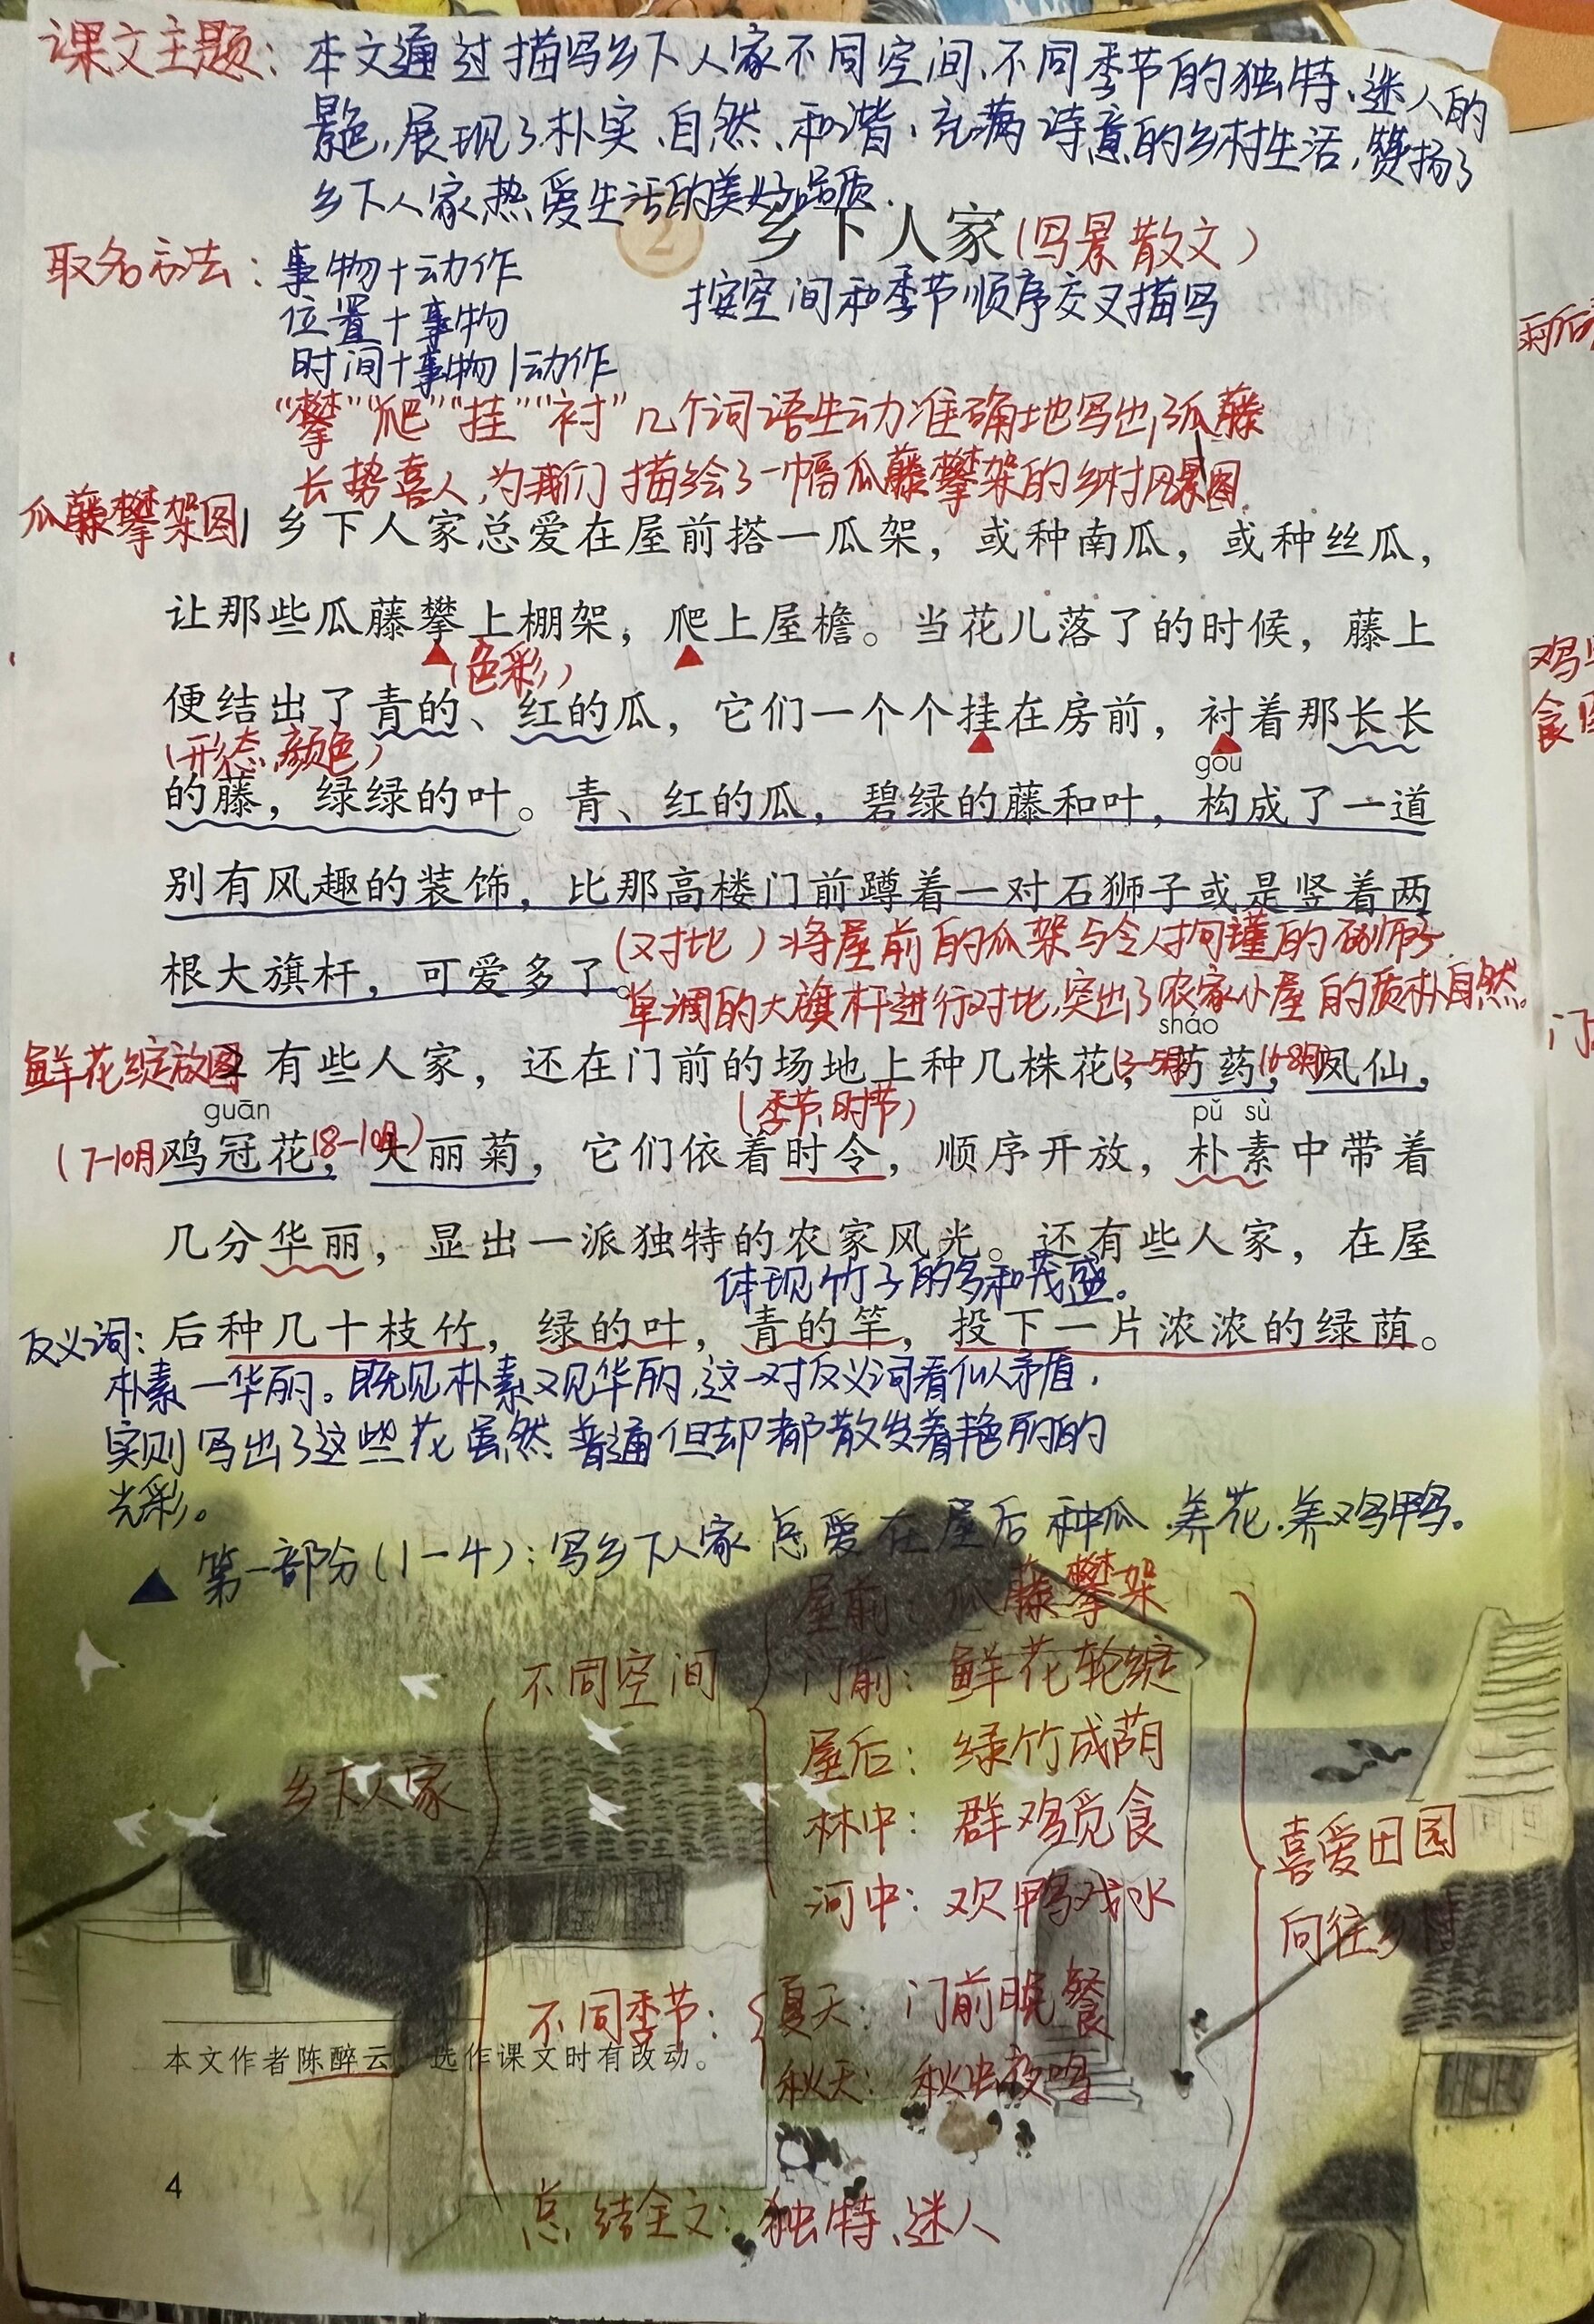 课文主题：本文通过描写乡下人家不同空间、不同季节的独特、迷人的
景色，展现了朴实、自然、和谐、充满诗意的乡村生活，赞扬了
乡下人家热爱生活的美好品质.
2 乡下人家(写景散文)
取名方法：事物+动作
按空间和季节顺序交叉描写
位置+事物
时间+事物/动作
“攀”“爬”“挂”“衬”几个词语生动准确地写出了瓜藤
长势喜人,为我们描绘了一幅瓜藤攀架的乡村风景图.
瓜藤攀架图
1 乡下人家总爱在屋前搭一瓜架，或种南瓜，或种丝瓜，
让那些瓜藤攀上棚架，爬上屋檐。当花儿落了的时候，藤上
(色彩)
便结出了青的、红的瓜，它们一个个挂在房前，衬着那长长
(形态、颜色)
gòu
的藤，绿绿的叶。青、红的瓜，碧绿的藤和叶，构成了一道
别有风趣的装饰，比那高楼门前蹲着一对石狮子或是竖着两
根大旗杆，可爱多了。
(对比)将屋前的瓜架与令人拘谨的石狮子、
单调的大旗杆进行对比,突出了农家小屋的质朴自然。
sháo
鲜花绽放图
2 有些人家，还在门前的场地上种几株花，芍药，凤仙，
guān
(季节、时节)
pǔ sù
(7-10月)鸡冠花，(8-10月)大丽菊，它们依着时令，顺序开放，朴素中带着
几分华丽，显出一派独特的农家风光。还有些人家，在屋
体现竹子的多和茂盛。
后种几十枝竹，绿的叶，青的竿，投下一片浓浓的绿荫。
反义词：
朴素—华丽。既见朴素又见华丽,这一对反义词看似矛盾,
实则写出了这些花虽然普通但却都散发着艳丽的
光彩。
▲ 第一部分(1-4)：写乡下人家总爱在屋后种瓜、养花、养鸡鸭。
屋前：瓜藤攀架
不同空间
门前：鲜花轮绽
屋后：绿竹成荫
乡下人家
林中：群鸡觅食
喜爱田园
河中：欢鸭戏水
向往乡村
不同季节：
夏天：门前晚餐
本文作者陈醉云，选作课文时有改动。
秋天：秋虫夜鸣
4
总结全文：独特、迷人